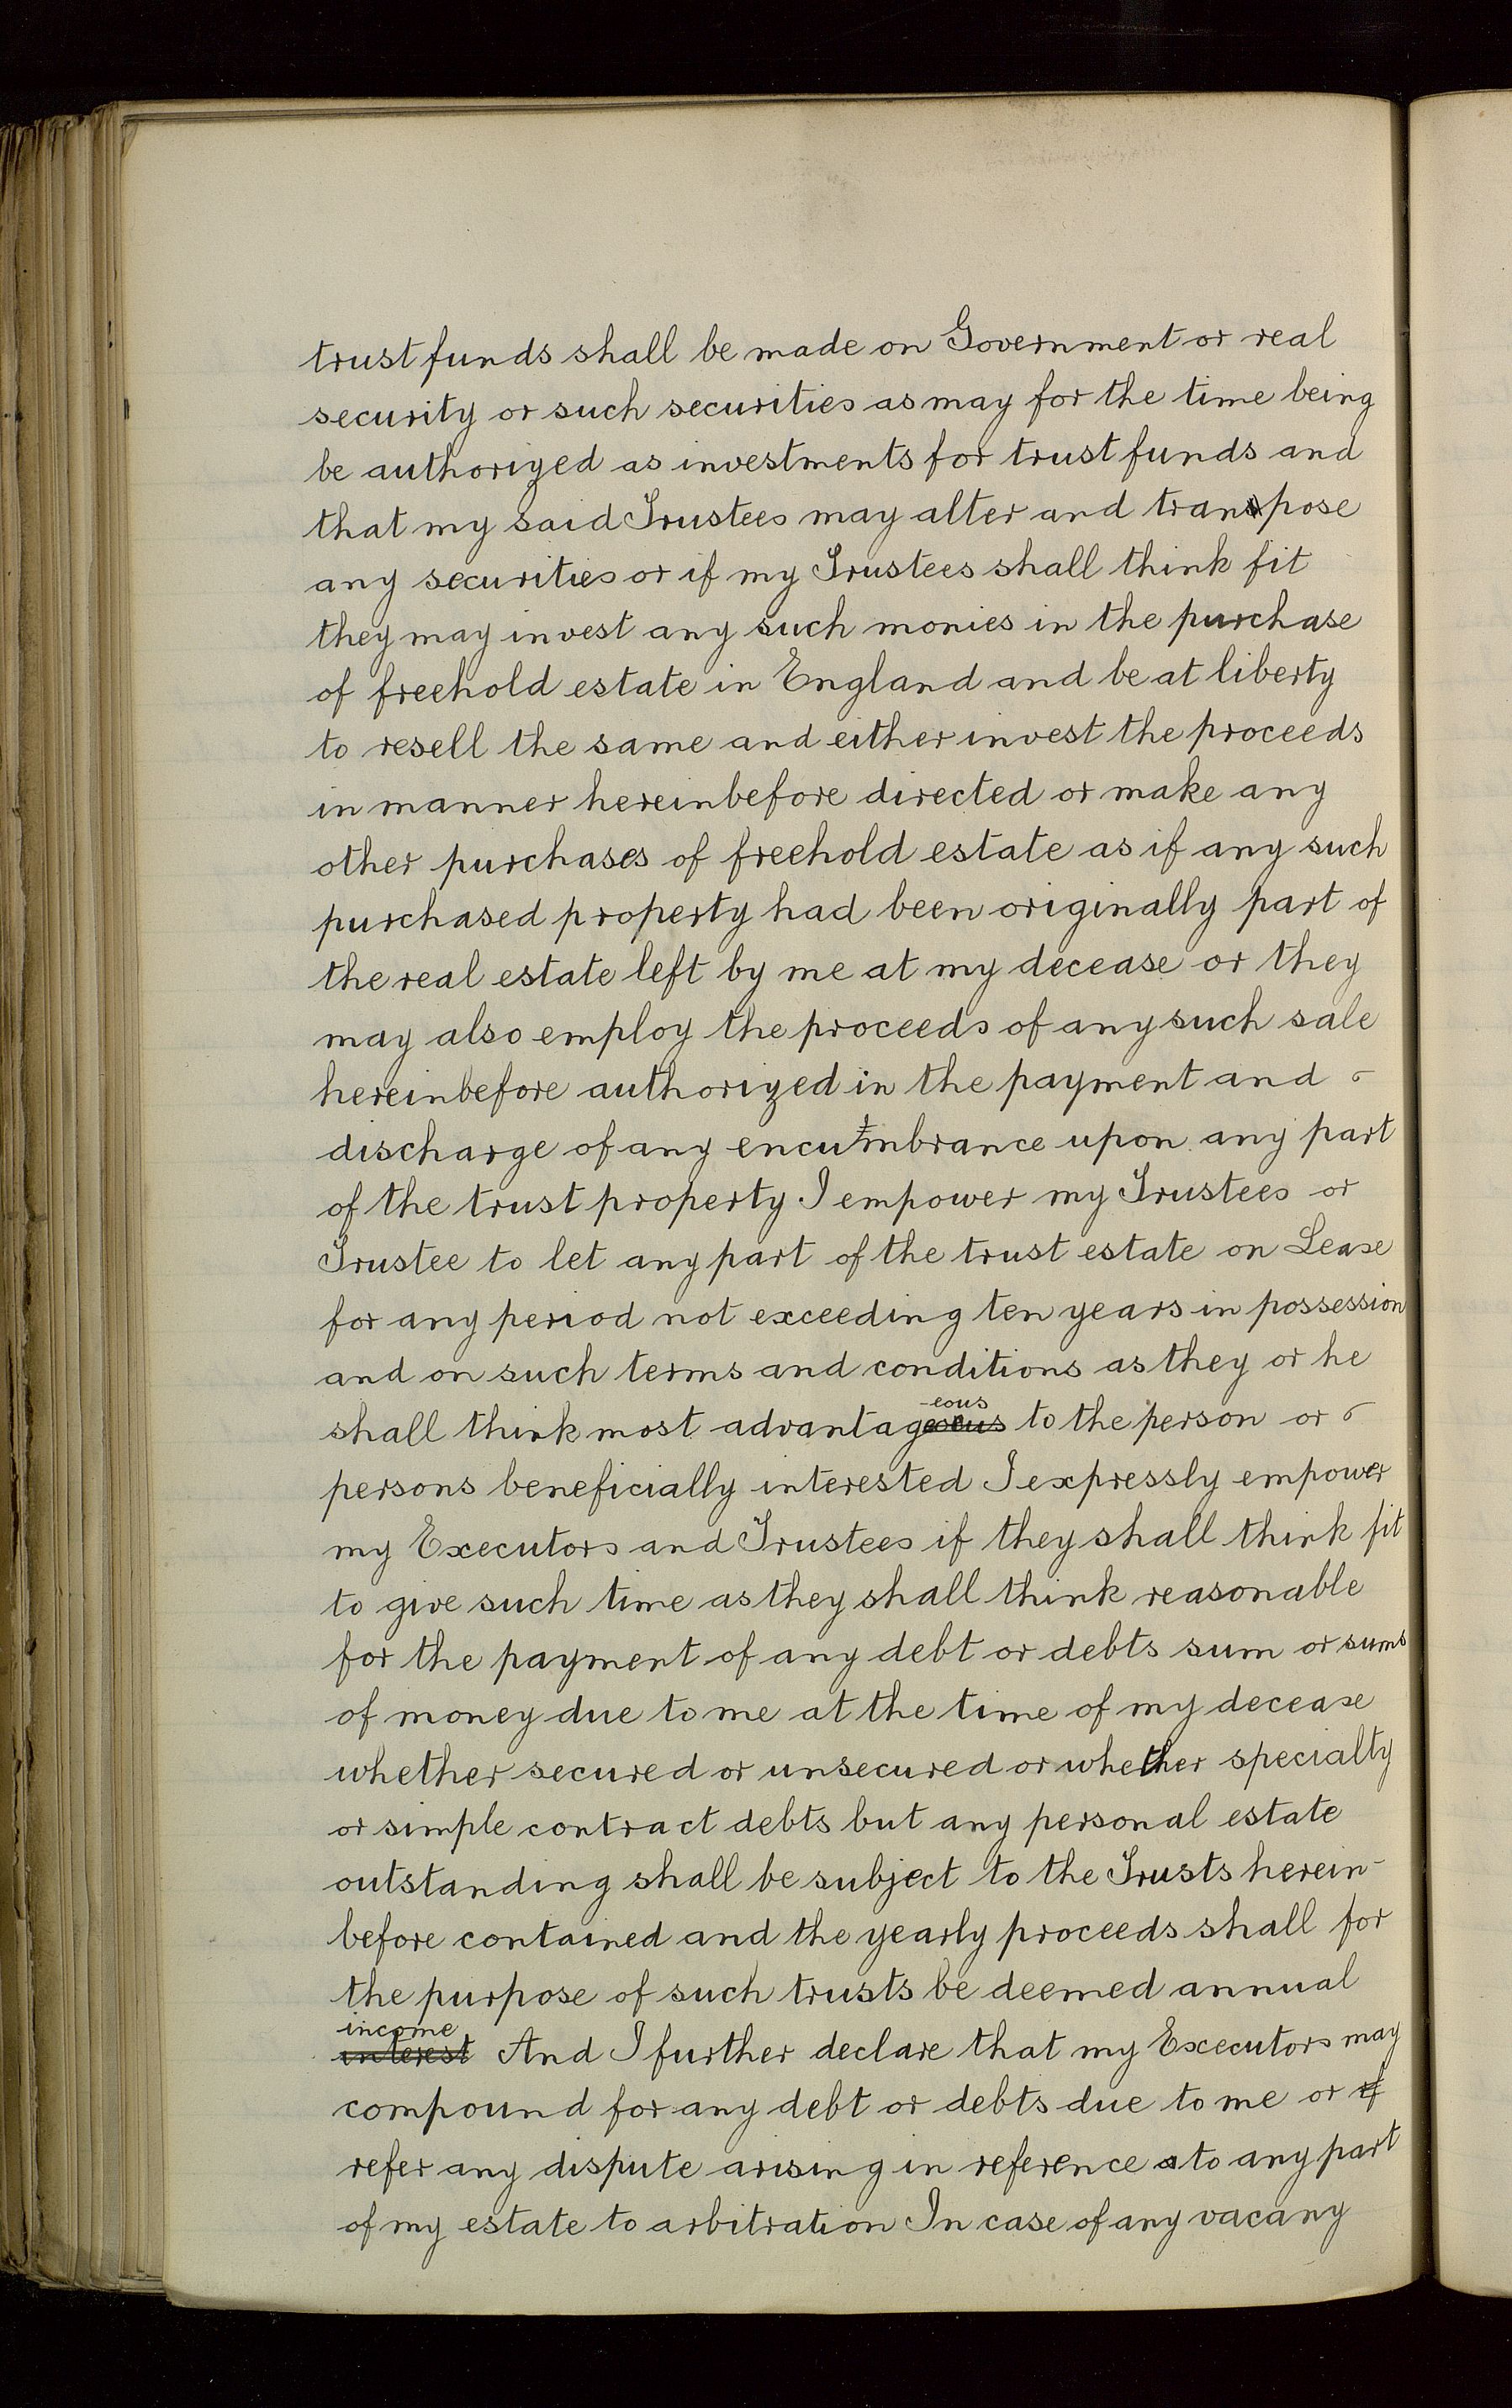 trust funds shall be made on Government or real
security or such securities as may for the time being
be authorized as investments for trust funds and
that my said Trustees may alter and transpose
any securities or if my Trustees shall think fit
they may invest any such monies in the purchase
of freehold estate in England and be at liberty
to resell the same and either invest the proceeds
in manner hereinbefore directed or make any
other purchases of freehold estate as if any such
purchased property had been originally part of
the real estate left by me at my decease or they
may also employ the proceeds of any such sale
hereinbefore authorized in the payment and
discharge of any encumbrance upon any part
of the trust property I empower my Trustees or
Trustee to let any part of the trust estate on Lease
for any period not exceeding ten years in possession
and on such terms and conditions as they or he
shall think most advantageous to the person or
persons beneficially interested I expressly empower
my Executors and Trustees if they shall think fit
to give such time as they shall think reasonable
for the payment of any debt or debts sum or sums
of money due to me at the time of my decease
whether secured or unsecured or whether specialty
or simple contract debts but any personal estate
outstanding shall be subject to the Trusts herein-
before contained and the yearly proceeds shall for
the purpose of such trusts be deemed annual
income
interest And I further declare that my Executors may
compound for any debt or debts due to me or if
refer any dispute arising in reference to any part
of my estate to arbitration In case of any vacany